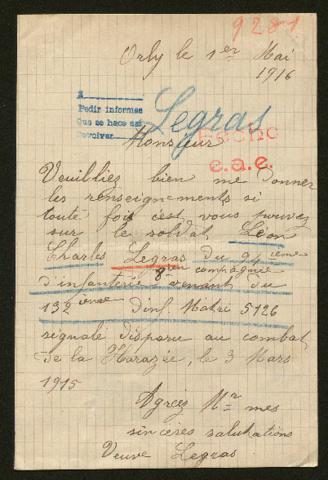 9281
Orly le 1er Mai
1916
A
Pedir informes
Que se hace así
Devolver
Legras
Hecho
e.a.e.
Monsieur
Veuilliez bien me donner
les renseignements si
toute fois c'est vous pouvez
sur le soldat Léon
Charles Legras du 94ième
8ième compagnie
d'infanterie venant du
132ième d'inf. Matri 5126
signalé disparu au combat
de la Harazée, le 3 Mars
1915
Agréez Mr mes
sincères saluhations
Veuve Legras